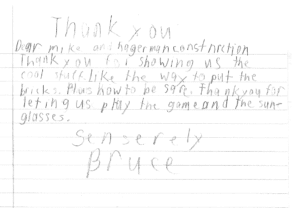 Thank you
Dear mike and hagerman construction
Thank you for showing us the
cool stuff. Like the way to put the
bricks. Plus how to be safe. thank you for
leting us play the game and the sun-
glasses.
Senserely
Bruce